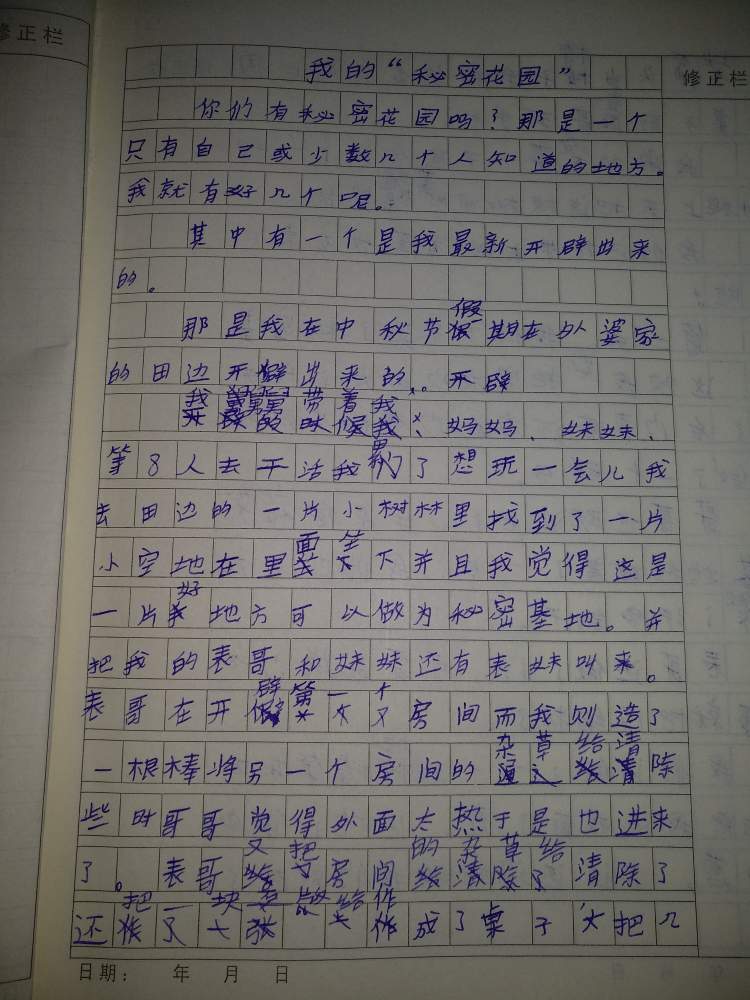 修正栏
修正栏
我的“秘密花园”
你们有秘密花园吗？那是一个
只有自己或少数几个人知道的地方。
我就有好几个呢。
其中有一个是我最新开辟出来
的。
那是我在中秋节假期在外婆家
的田边开辟出来的。开辟
我舅舅带着我、妈妈、妹妹、
等8人去干活我累了想玩一会儿我
去田边的一片小树林里找到了一片
小空地在里面坐下并且我觉得这是
一片好地方可以做为秘密基地。并
把我的表哥和妹妹还有表妹叫来。
表哥在开辟第一个房间而我则造了
一根棒将另一个房间的杂草给清除
些时哥哥觉得外面太热于是也进来
了。表哥又把房间的杂草给清除了
还把一块给作成了桌子 把几
日期： 年 月 日